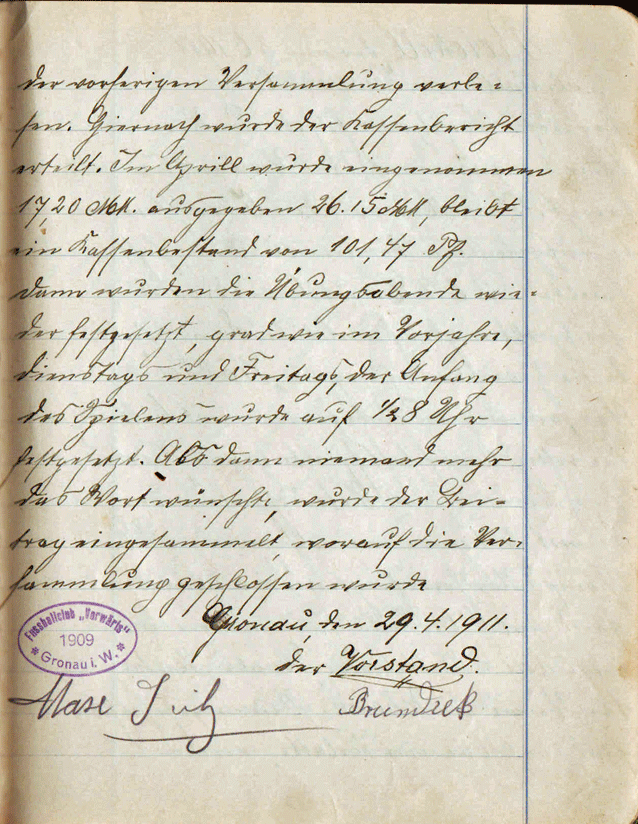 der vorherigen Versammlung verle-
sen. Hiernach wurde der Kassenbericht
erteilt. Im Aprill wurde eingenommen
17,20 Mk. ausgegeben 26.15 Mk, bleibt
ein Kassenbestand von 101,47 Pf.
Dann wurden die Übungsabende wie-
der festgesetzt, grad wie im Vorjahre,
Dienstags und Freitags, der Anfang
des Spielens wurde auf ½8 Uhr
festgesetzt. Als dann niemand mehr
das Wort wünschte, wurde der Bei-
trag eingesammelt, worauf die Ver-
sammlung geschlossen wurde
Gronau, den 29.4.1911.
der Vorstand.
Fussballclub „Vorwärts"
1909
* Gronau i. W. *